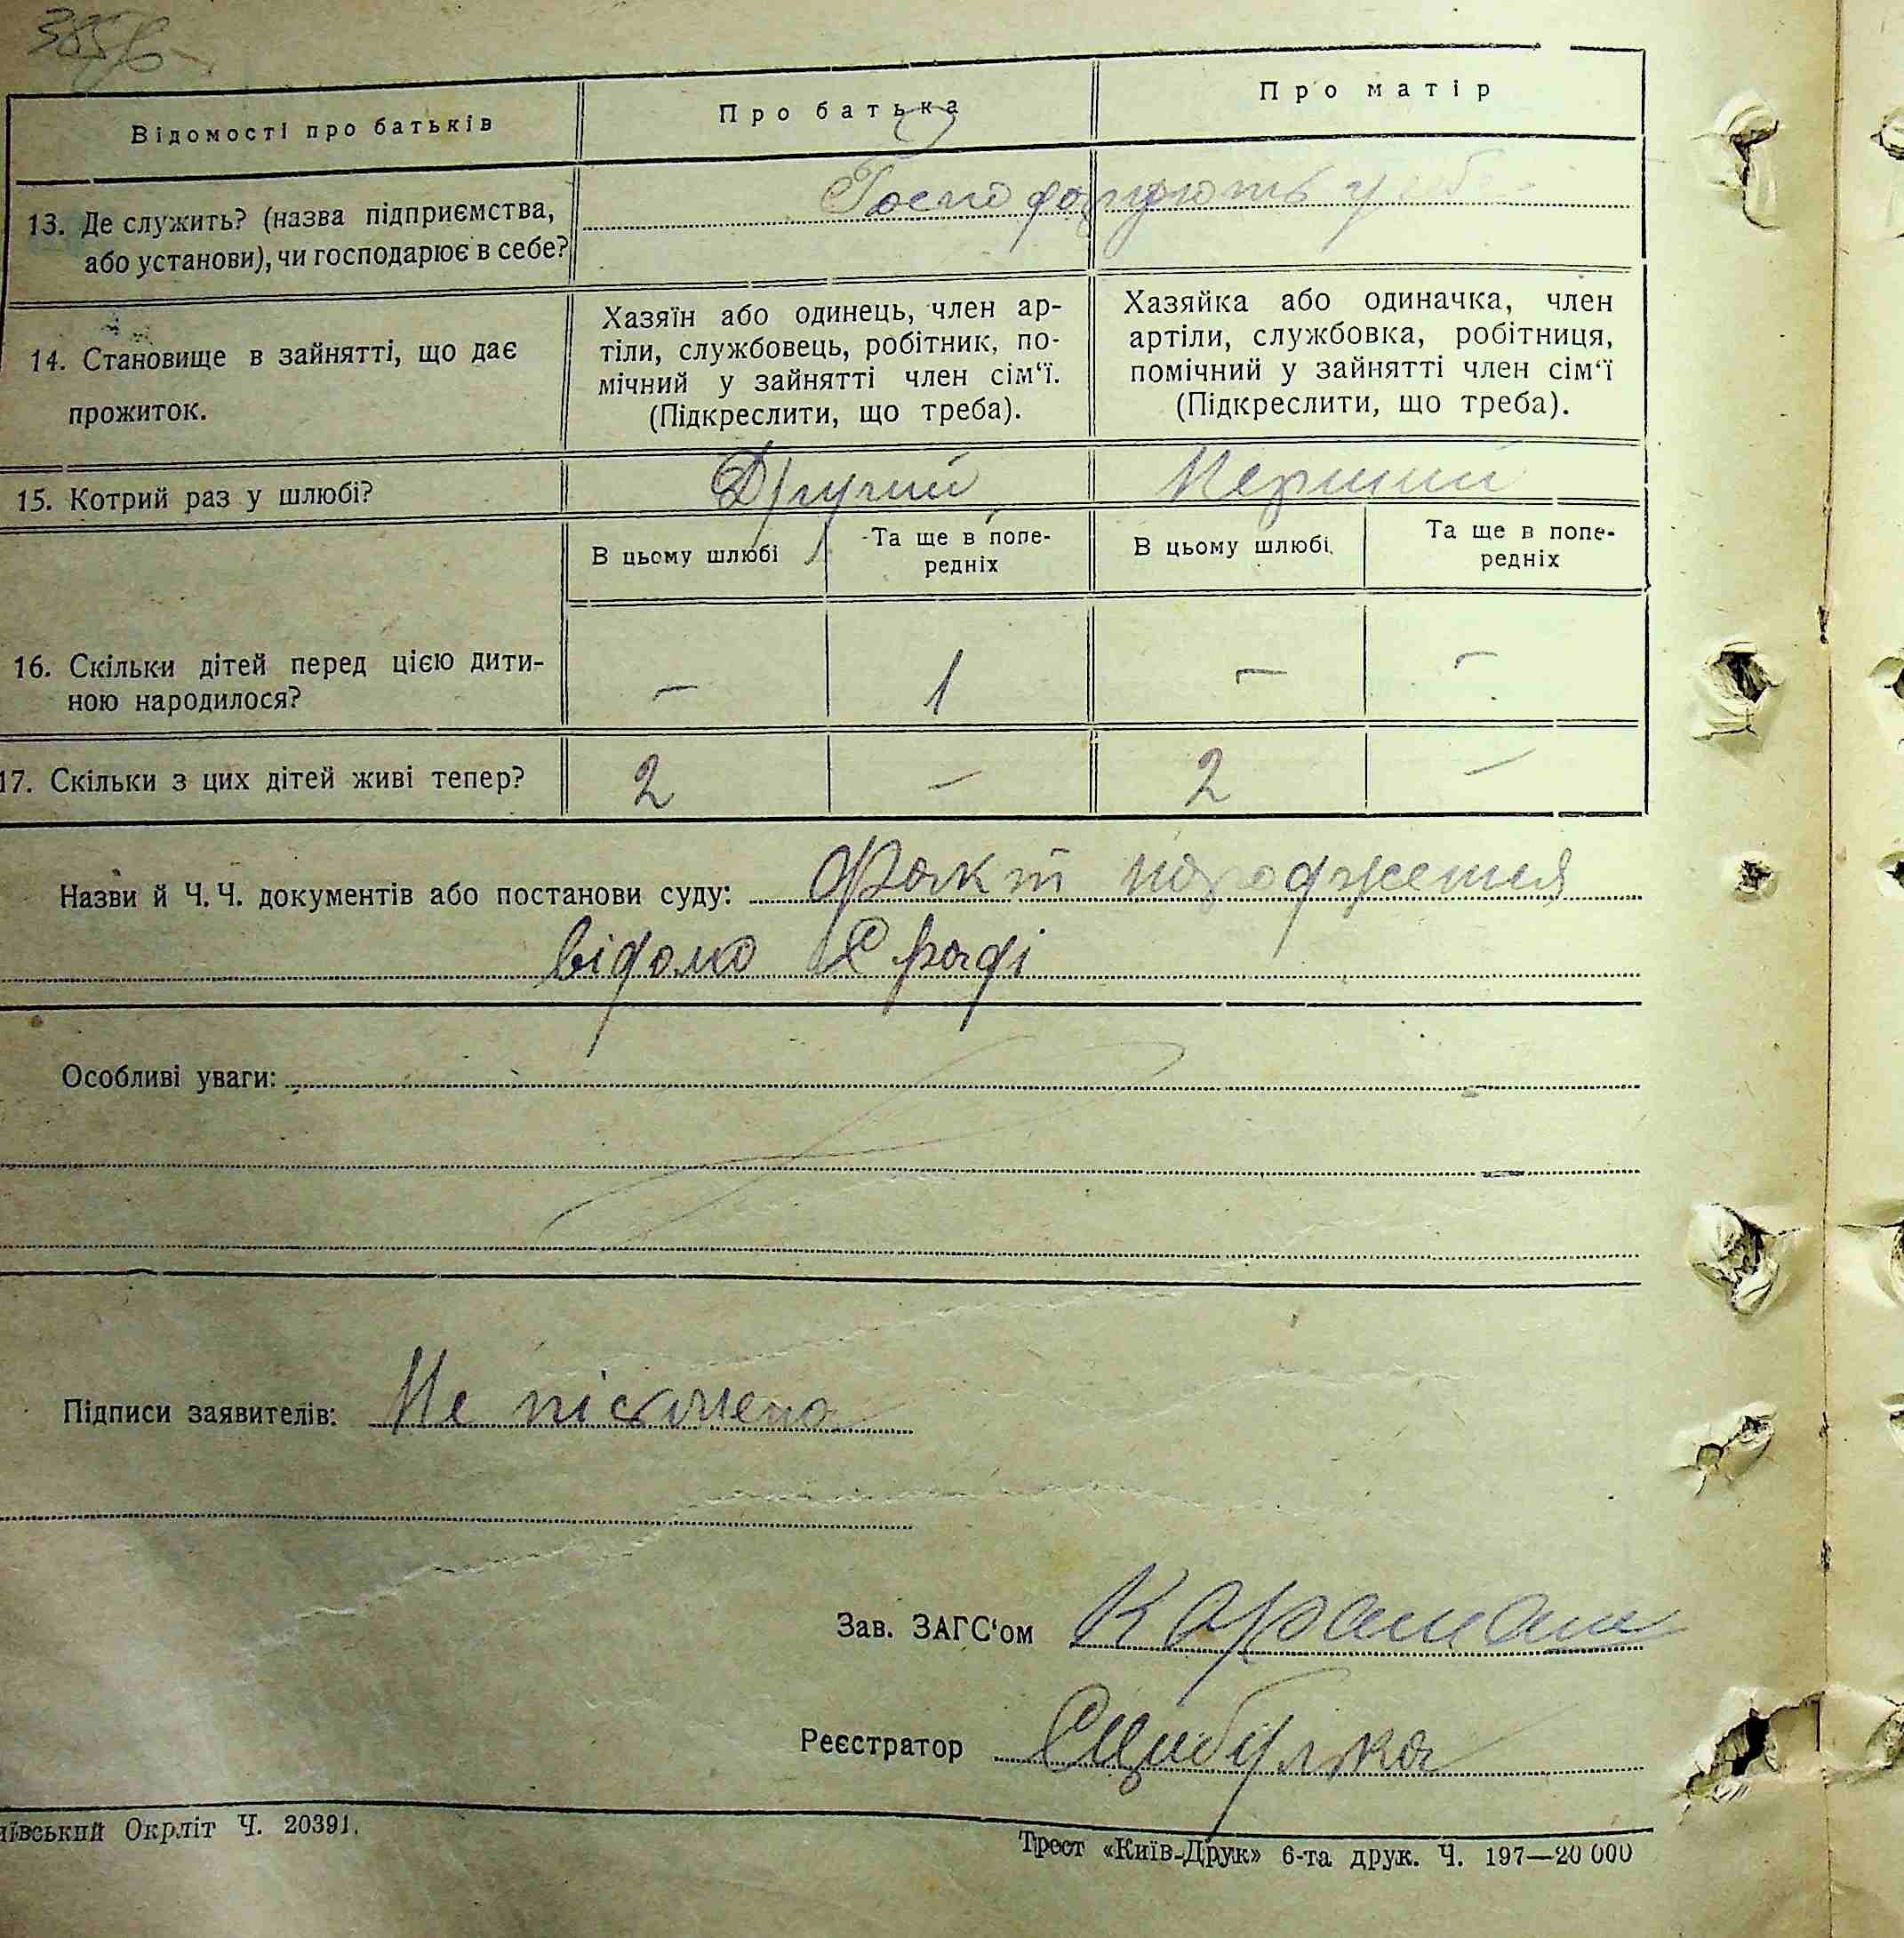 Відомості про батьків
Про батька
Про матір
13. Де служить? (назва підприємства,
або установи), чи господарює в себе?
Господарюють у себе
14. Становище в зайнятті, що дає
прожиток.
Хазяїн або одинець, член ар-
тіли, службовець, робітник, по-
мічний у зайнятті член сім‘ї.
(Підкреслити, що треба).
Хазяйка або одиначка, член
артіли, службовка, робітниця,
помічний у зайнятті член сім‘ї
(Підкреслити, що треба).
15. Котрий раз у шлюбі?
Другий
Перший
В цьому шлюбі
Та ще в попе-
редніх
В цьому шлюбі
Та ще в попе-
редніх
16. Скільки дітей перед цією дити-
ною народилося?
— 1 — —
17. Скільки з цих дітей живі тепер?
2 — 2 —
Назви й Ч. Ч. документів або постанови суду: Факт народження
відомо С раді
Особливі уваги:
Підписи заявителів: Не пісьмена
Зав. ЗАГС‘ом Караман
Реєстратор
иївський Окрліт Ч. 20391.
Трест «Київ-Друк» 6-та друк. Ч. 197—20 000